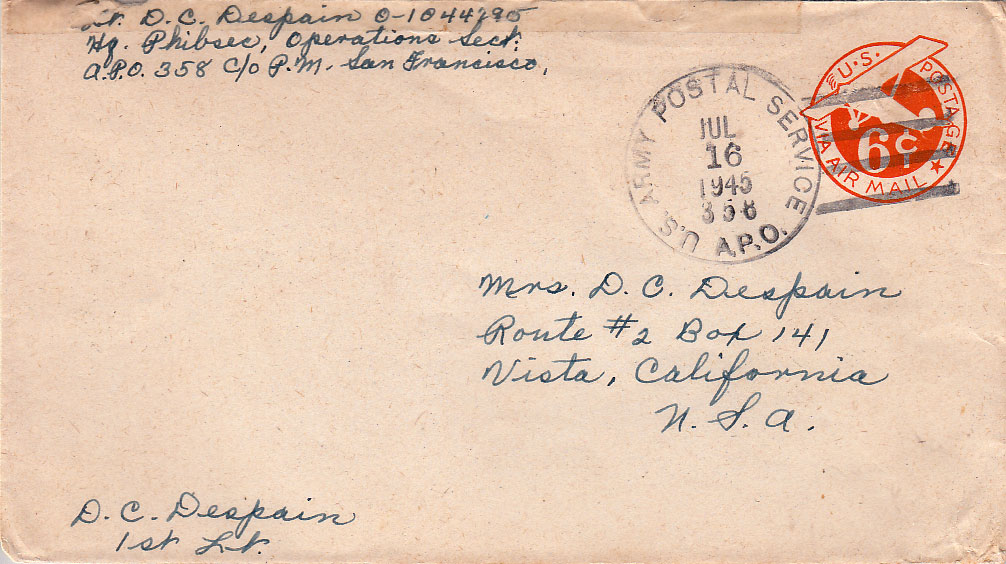 Lt. D. C. Despain O-1044295
Hq. Phibsec, Operations Sect.
A.P.O. 358 C/o P.M. San Francisco,
U.S. ARMY POSTAL SERVICE
JUL
16
1945
358
A.P.O.
U.S. POSTAGE
6¢
VIA AIR MAIL
Mrs. D. C. Despain
Route #2 Box 141
Vista, California
U. S. A.
D. C. Despain
1st Lt.